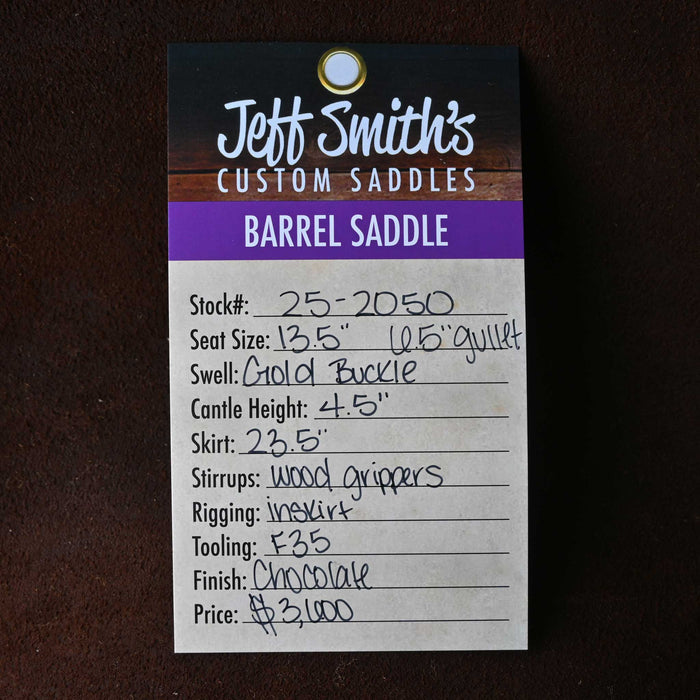 Jeff Smith's
CUSTOM SADDLES
BARREL SADDLE
Stock#: 25-2050
Seat Size: 13.5" 6.5" gullet
Swell: Gold Buckle
Cantle Height: 4.5"
Skirt: 23.5"
Stirrups: wood grippers
Rigging: inskirt
Tooling: F35
Finish: Chocolate
Price: $3,600